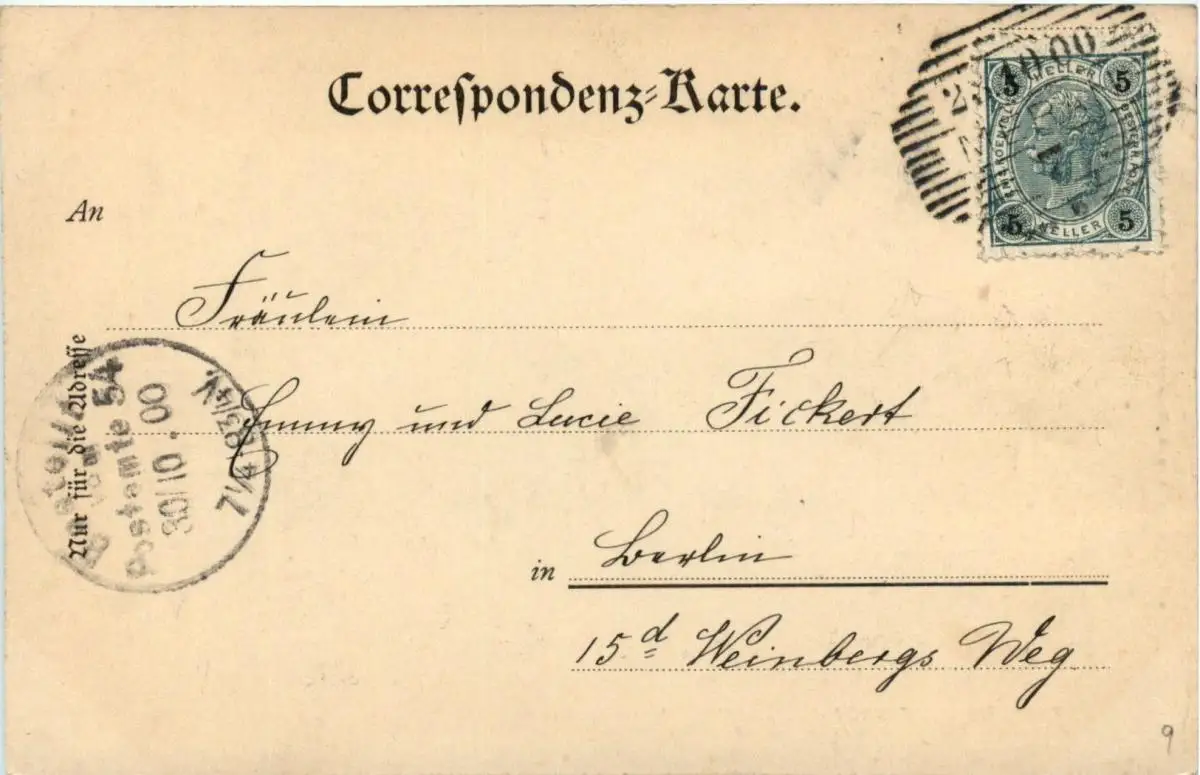 Correſpondenz-Karte.
5 HELLER 5
5 HELLER 5
An
Fräulein
Emmy und Lucie Fickert
in Berlin
15d Weinbergs Weg
Nur für die Adreſſe
Postamte 54
30/10.00
7¼
N.
9